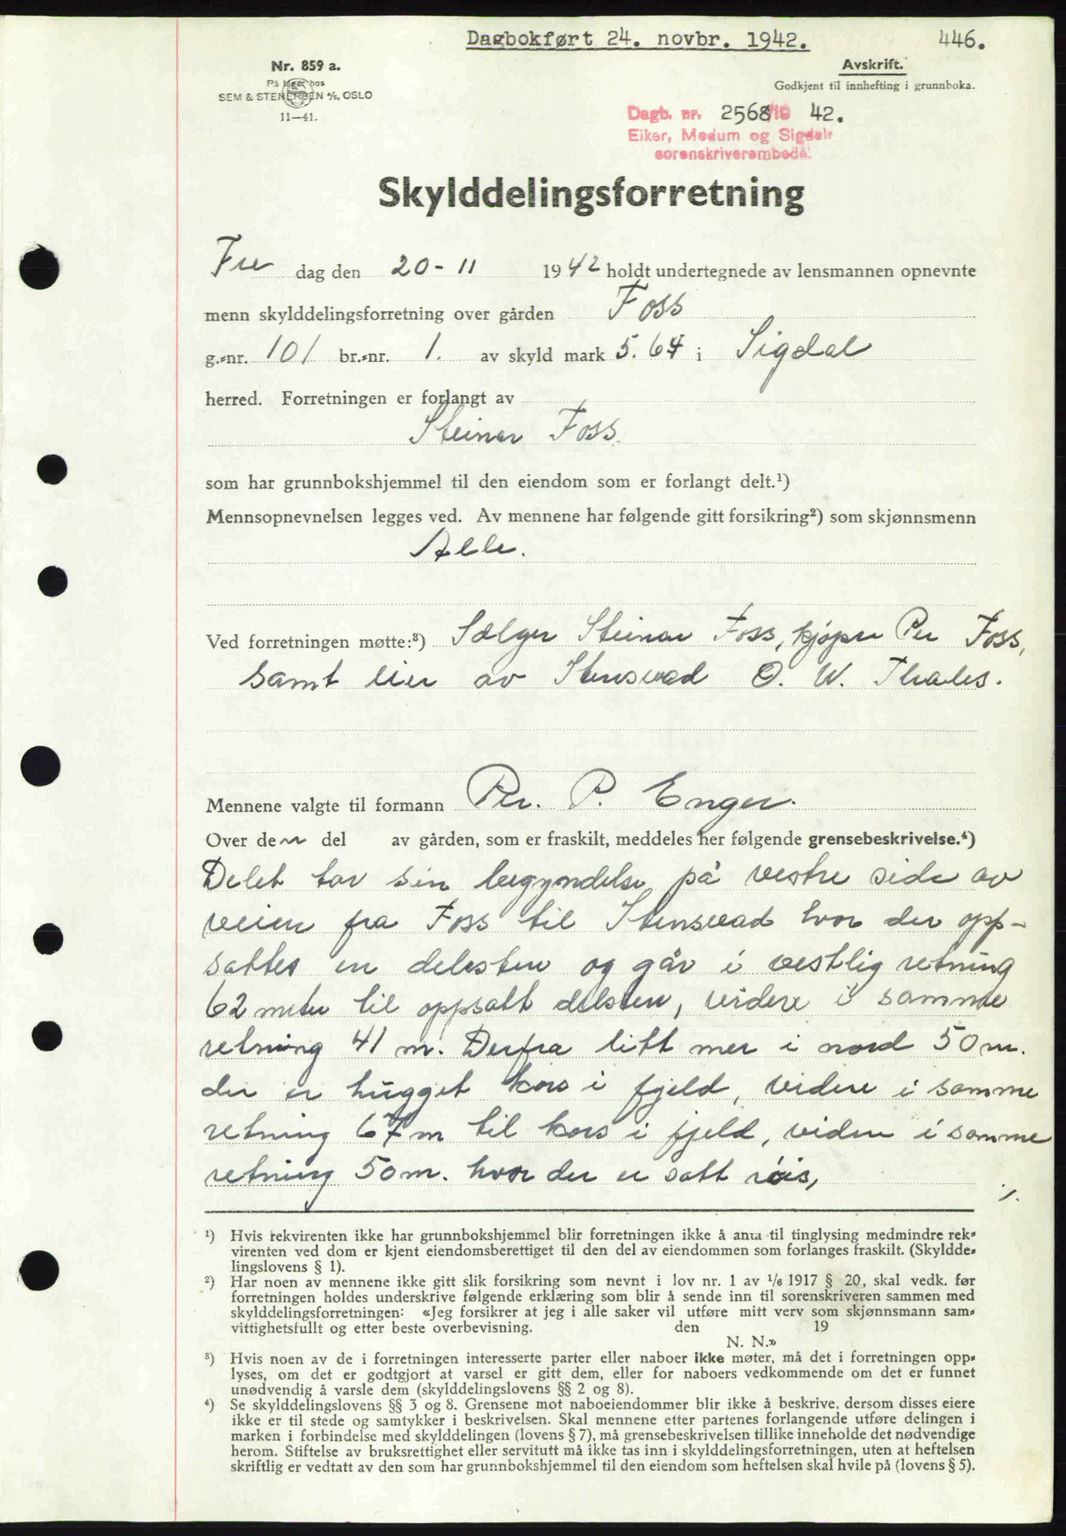 Dagbokført 24. novbr. 1942. 446.
Nr. 859 a.
På lager hos
SEM & STENERSEN A/S, OSLO
11—41.
Avskrift.
Godkjent til innhefting i grunnboka.
Dagb. nr. 2568/19 42.
Eiker, Modum og Sigdals
sorenskriverembede.
Skylddelingsforretning
Fre dag den 20-11 1942 holdt undertegnede av lensmannen opnevnte
menn skylddelingsforretning over gården Foss
g.-nr. 101 br.-nr. 1. av skyld mark 5.64 i Sigdal
herred. Forretningen er forlangt av
Steinar Foss.
som har grunnbokshjemmel til den eiendom som er forlangt delt.¹)
Mennsopnevnelsen legges ved. Av mennene har følgende gitt forsikring²) som skjønnsmenn
Alle.
Ved forretningen møtte:³) Sælger Steinar Foss, kjøper Per Foss,
samt eier av Stensvad O. W. Thales.
Mennene valgte til formann Per. P. Enger.
Over den del av gården, som er fraskilt, meddeles her følgende grensebeskrivelse.⁴)
Delet tar sin begyndelse på vestre side av
veien fra Foss til Stensvad hvor der opp-
sattes en delesten og går i vestlig retning
62 meter til oppsatt delsten, videre i samme
retning 41 m. Derfra litt mer i nord 50 m.
der er hugget kors i fjeld, videre i samme
retning 67 m til kors i fjeld, viden i samme
retning 50 m. hvor der er satt røis,
./.
¹) Hvis rekvirenten ikke har grunnbokshjemmel blir forretningen ikke å anta til tinglysing medmindre rek-
virenten ved dom er kjent eiendomsberettiget til den del av eiendommen som forlanges fraskilt. (Skyldde-
lingslovens § 1).
²) Har noen av mennene ikke gitt slik forsikring som nevnt i lov nr. 1 av 1/6 1917 § 20, skal vedk. før
forretningen holdes underskrive følgende erklæring som blir å sende inn til sorenskriveren sammen med
skylddelingsforretningen: «Jeg forsikrer at jeg i alle saker vil utføre mitt verv som skjønnsmann sam-
vittighetsfullt og etter beste overbevisning. den 19
N. N.»
³) Hvis noen av de i forretningen interesserte parter eller naboer ikke møter, må det i forretningen opp-
lyses, om det er godtgjort at varsel er gitt dem, eller for naboers vedkommende om det er funnet
unødvendig å varsle dem (skylddelingslovens §§ 2 og 8).
⁴) Se skylddelingslovens §§ 3 og 8. Grensene mot naboeiendommer blir ikke å beskrive, dersom disses eiere
ikke er til stede og samtykker i beskrivelsen. Skal mennene etter partenes forlangende utføre delingen i
marken i forbindelse med skylddelingen (lovens § 7), må grensebeskrivelsen tillike inneholde det nødvendige
herom. Stiftelse av bruksrettighet eller servitutt må ikke tas inn i skylddelingsforretningen, uten at heftelsen
skriftlig er vedtatt av den som har grunnbokshjemmel til den eiendom som heftelsen skal hvile på (lovens § 5).